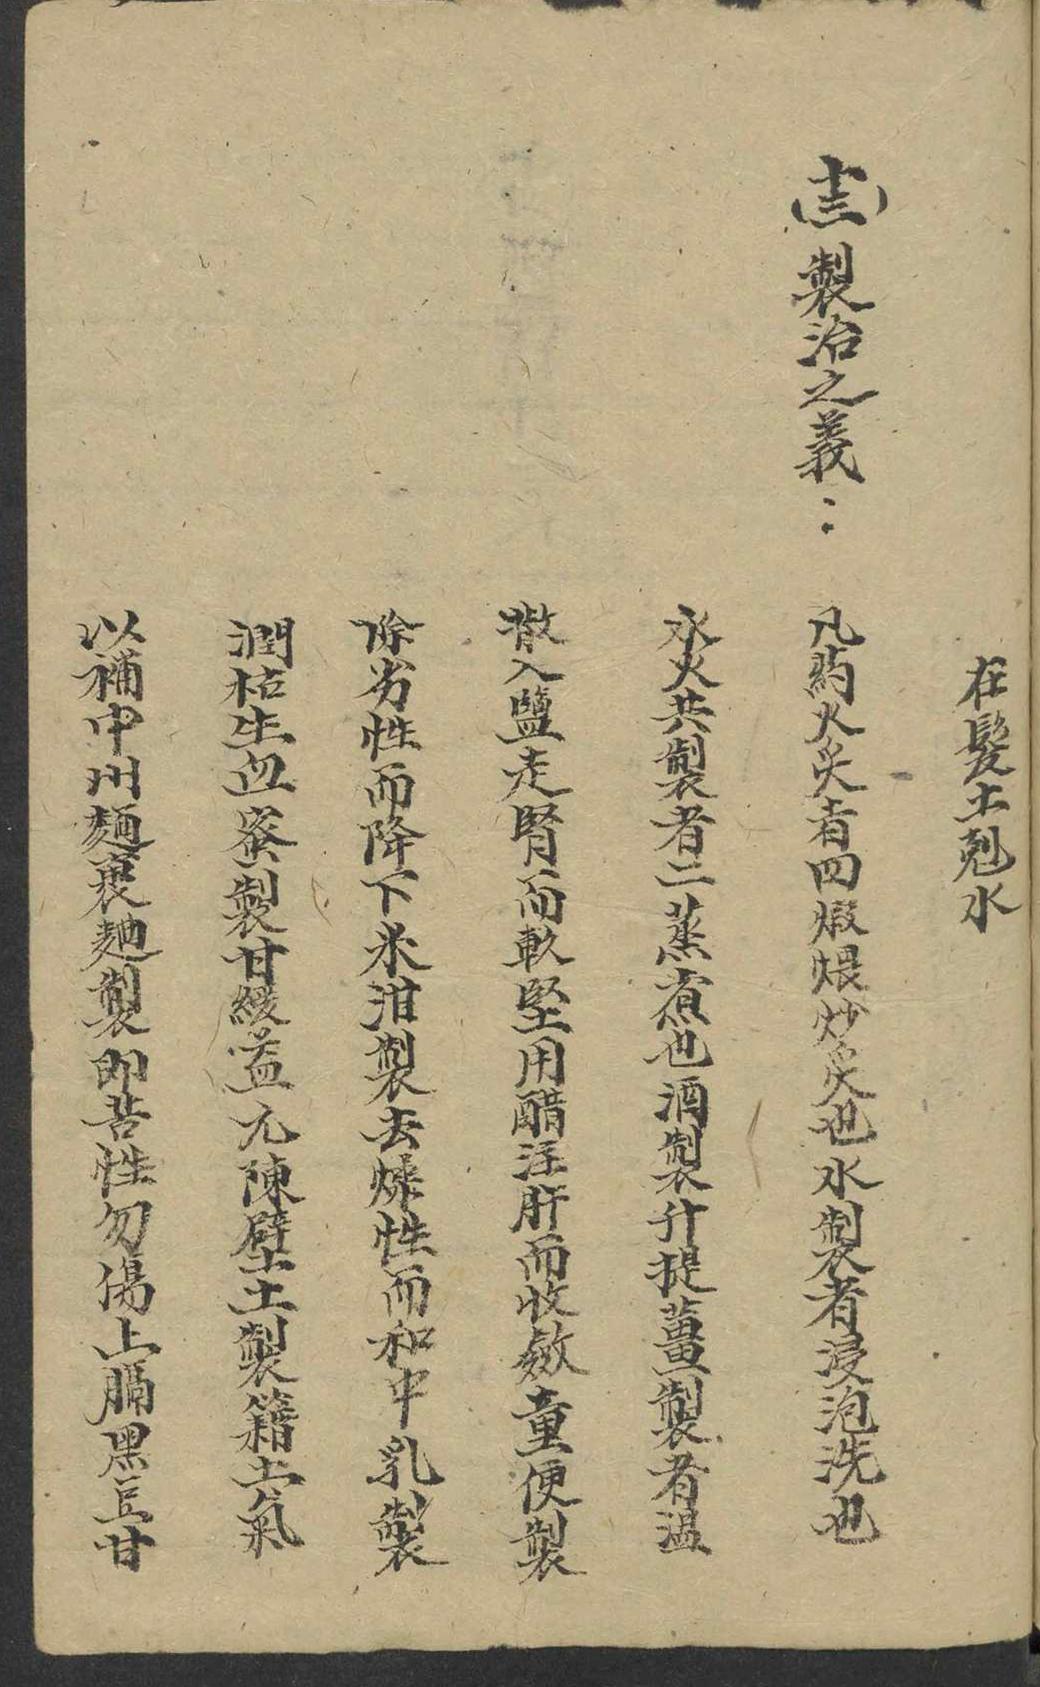 在髮土剋水
(十三)製治之義：
凡药火炙者四煆煨炒炙也水製者浸泡洗也
水火共製者二蒸煮也酒製升提薑製者温
散入鹽走腎而軟堅用醋注肝而收斂童便製
除劣性而降下米泔製去燥性而和中乳製
潤枯生血蜜製甘緩益元陳壁土製籍土氣
以補中州麵裹麯製即苦性勿傷上膈黑豆甘